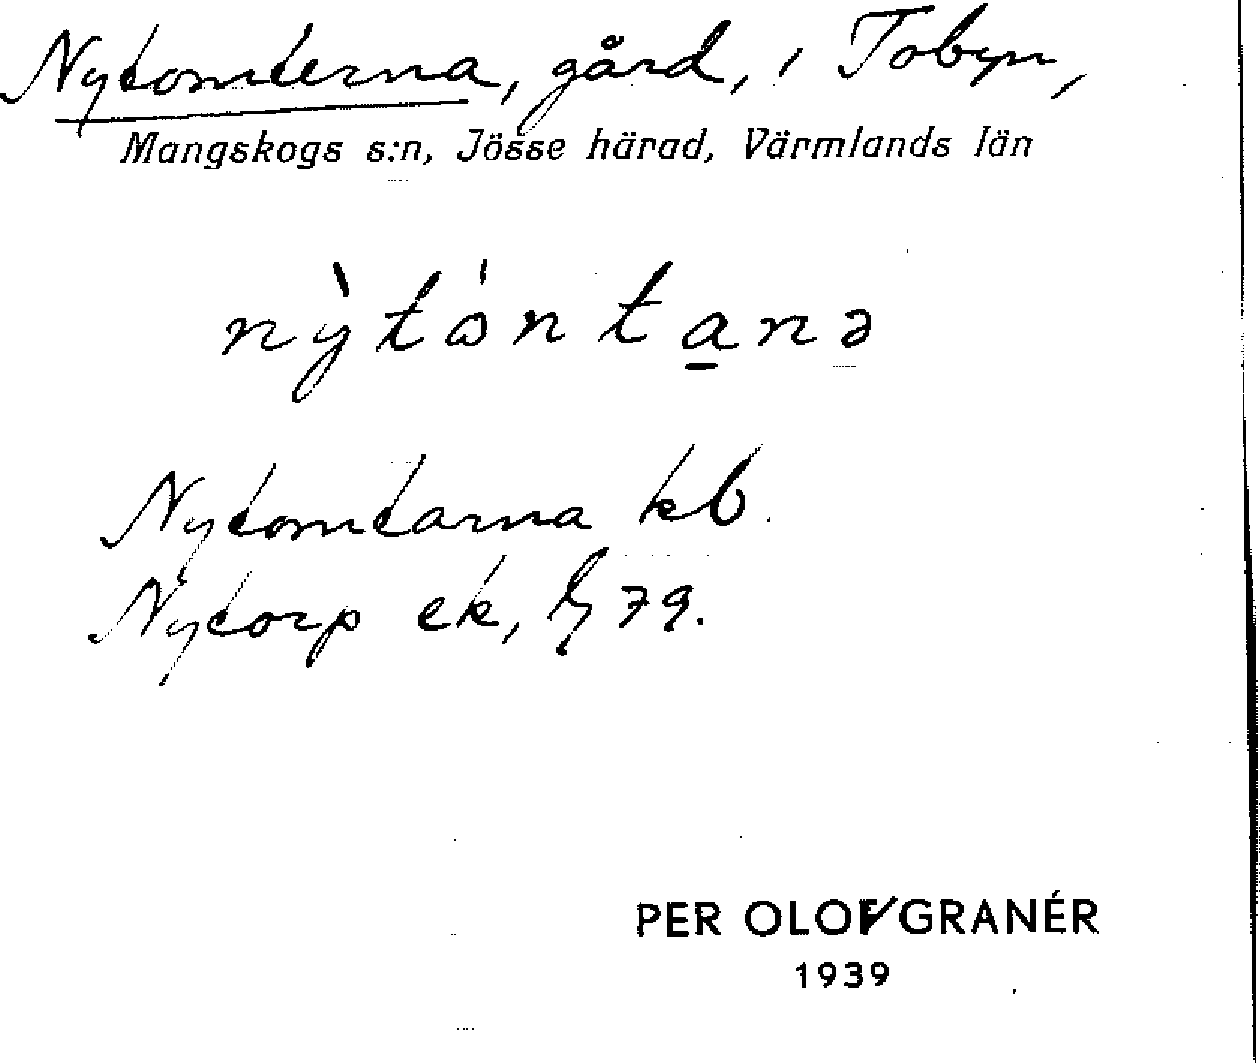 Nytomterna, gård, i Tobyn,
Mangskogs s:n, Jösse härad, Värmlands län
ny̍̀tón ta̱nə
Nytomtarna kb.
Nytorp ek, 79.
PER OLOF GRANÉR
1939